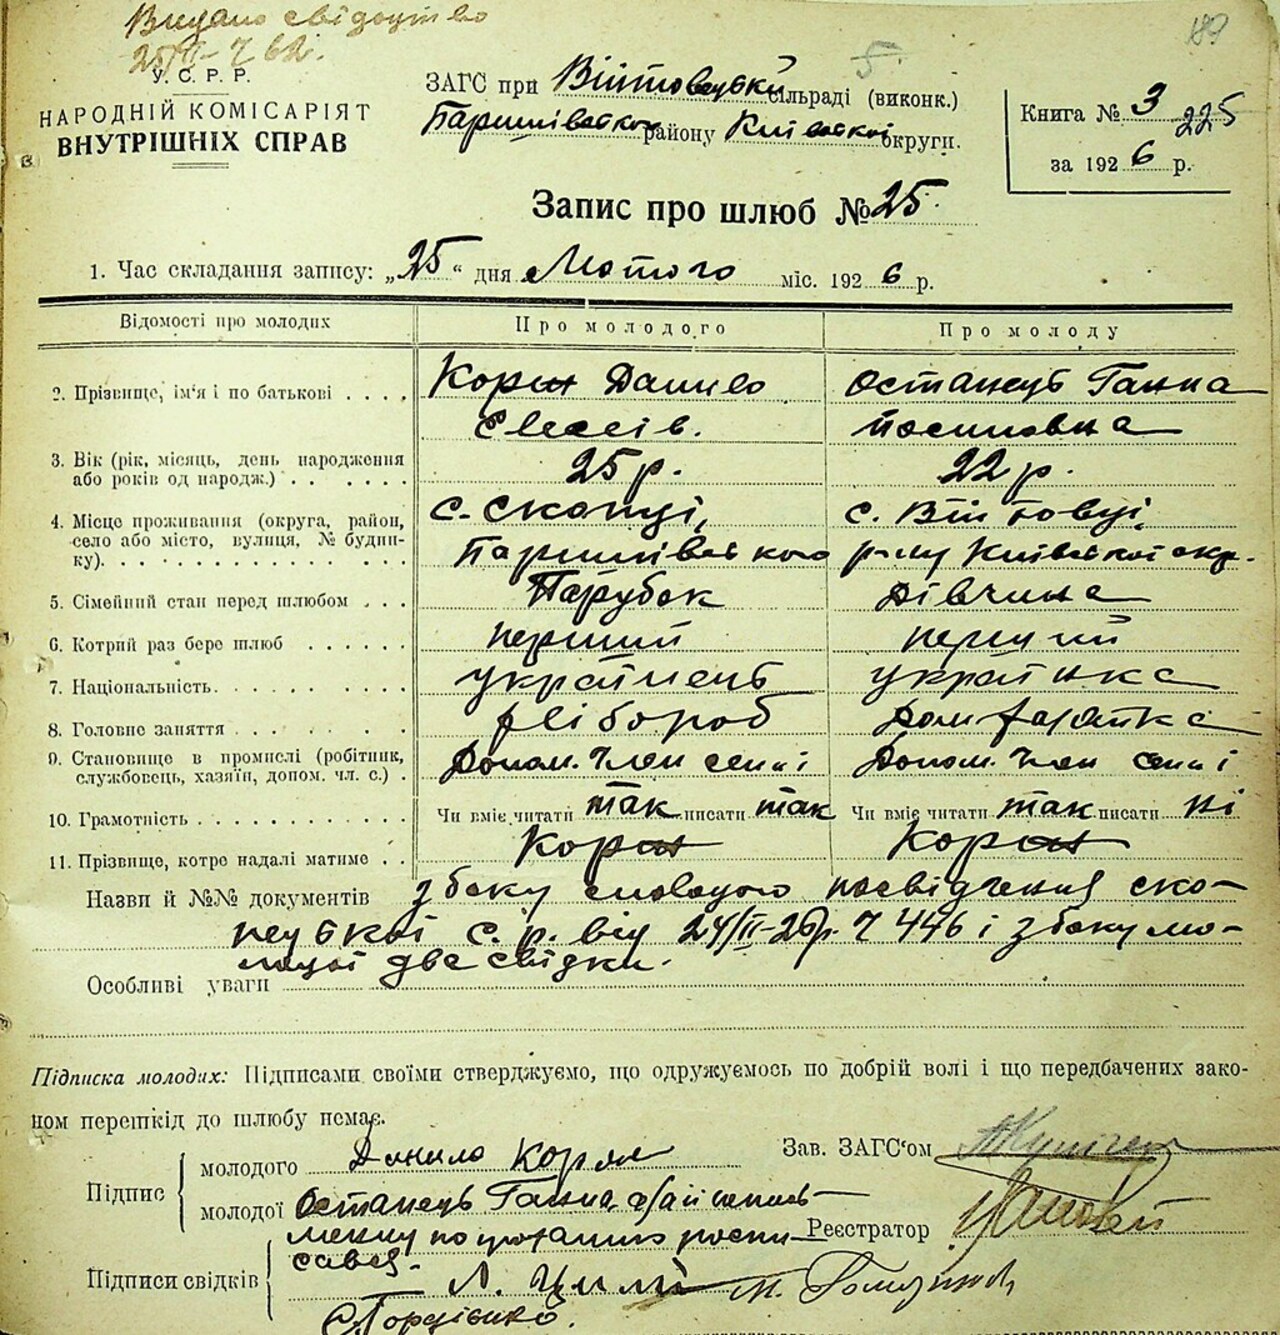 Видано свідоцтво
25/II- 762.
189
5.
У. С. Р. Р.
НАРОДНІЙ КОМІСАРІЯТ
ВНУТРІШНІХ СПРАВ
ЗАГС при Війтовецькій сільраді (виконк.)
району Київської округи.
Книга № 3 225
за 1926 р.
Запис про шлюб № 25.
1. Час складання запису: „25“ дня Лютого міс. 1926 р.
Відомості про молодих Про молодого Про молоду
2. Прізвище, ім'я і по батькові . . . . Данило Останець Ганна
3. Вік (рік, місяць, день народження
або років од народж.) . . . . . . . 25 р. 22 р.
4. Місце проживання (округа, район, с. Скопці, с. Війтовці,
село або місто, вулиця, № будин-
ку). . . . . . . . . . . . . . р-ну Київської окр.
5. Сімейний стан перед шлюбом . . . Парубок Дівчина
6. Котрий раз бере шлюб . . . . . . перший перший
7. Національність. . . . . . . . . . українець українка
8. Головне заняття . . . . . . . . хлібороб
9. Становище в промислі (робітник,
службовець, хазяїн, допом. чл. с.) . Допом. член сем'ї Допом. член сем'ї
10. Грамотність . . . . . . . . . . . . Чи вміє читати так писати так Чи вміє читати так писати ні
11. Прізвище, котре надалі матиме . .
Назви й №№ документів з боку молодого посвідчення ско-
пецької с. р. від 24/II-26 р. 446 і з боку мо-
лодої два свідки.
Особливі уваги
Підписка молодих: Підписами своїми стверджуємо, що одружуємось по добрій волі і що передбачених зако-
ном перешкід до шлюбу немає.
Підпис
молодого Данило
Зав. ЗАГС‘ом
молодої Останець Ганна, а за її
Реєстратор
Підписи свідків